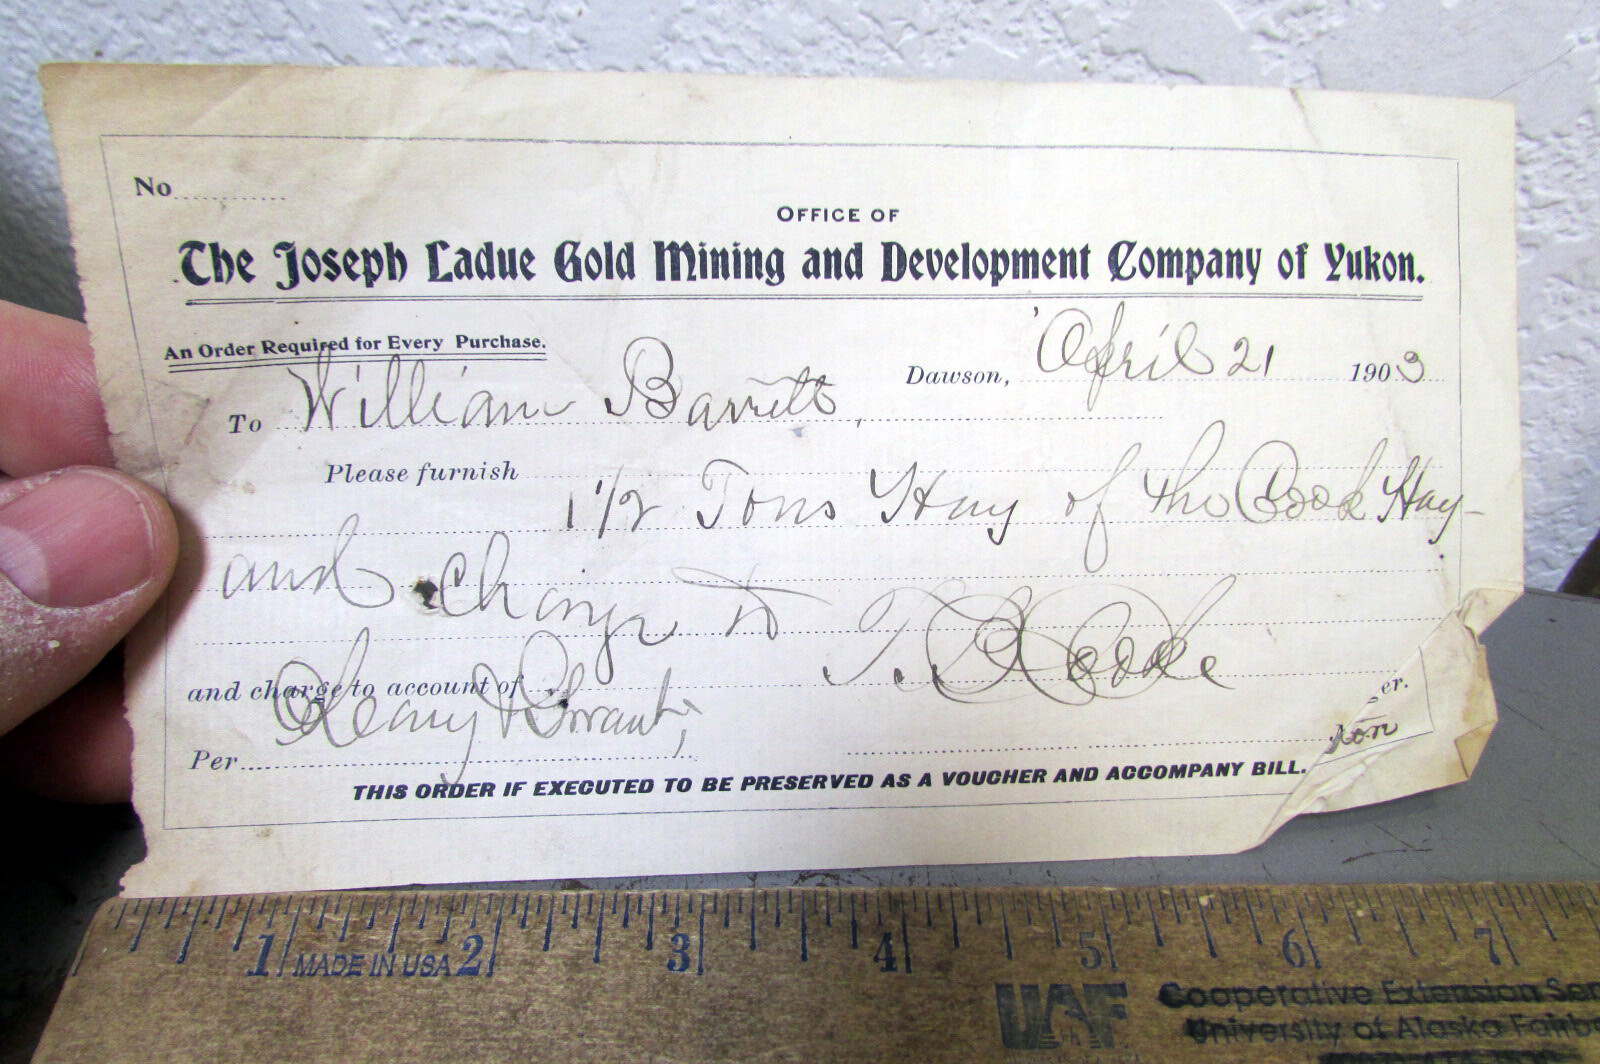 No
OFFICE OF
The Joseph Ladue Gold Mining and Development Company of Yukon.
An Order Required for Every Purchase.
Dawson, April 21 1903
To William Barrett,
Please furnish
1 1/2 Tons Hay of the Cook Hay-
and charge to
and charge to account of
Per
er.
THIS ORDER IF EXECUTED TO BE PRESERVED AS A VOUCHER AND ACCOMPANY BILL.
1 2 3 4 5 6 7
MADE IN USA
UAF Cooperative Extension Ser
University of Alaska Fairb